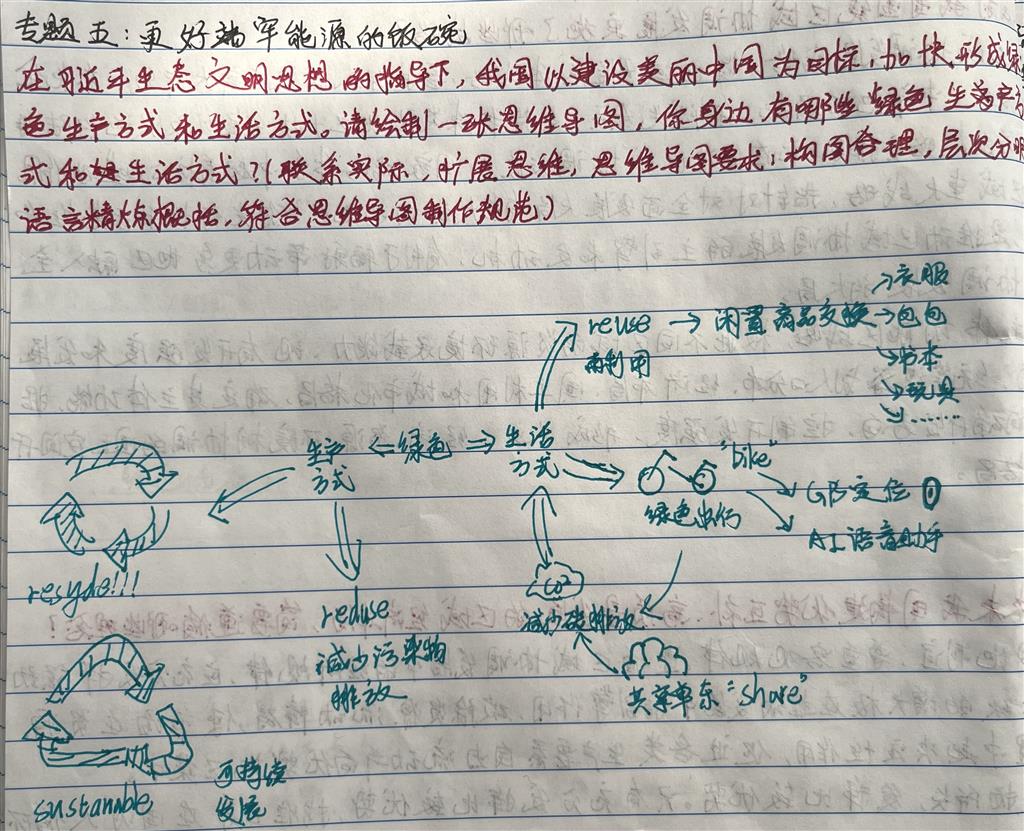 专题五：更好端牢能源的饭碗
在习近平生态文明思想的指导下，我国以建设美丽中国为目标，加快形成绿
色生产方式和生活方式。请绘制一张思维导图，你身边有哪些绿色生产方
式和生活方式？（联系实际，扩展思维，思维导图要求：构图合理，层次分明
语言精炼概括，符合思维导图制作规范）
衣服
reuse → 闲置商品交换 → 包包
再利用
书本
玩具
……
生产 ⇐ 绿色 ⇒ 生活
方式
方式
"bike"
GPS定位
绿色出行
AI语音助手
resycle!!!
CO2
reduse
减少碳排放
减少污染物
排放
共享单车"share"
sustannble
可持续
发展